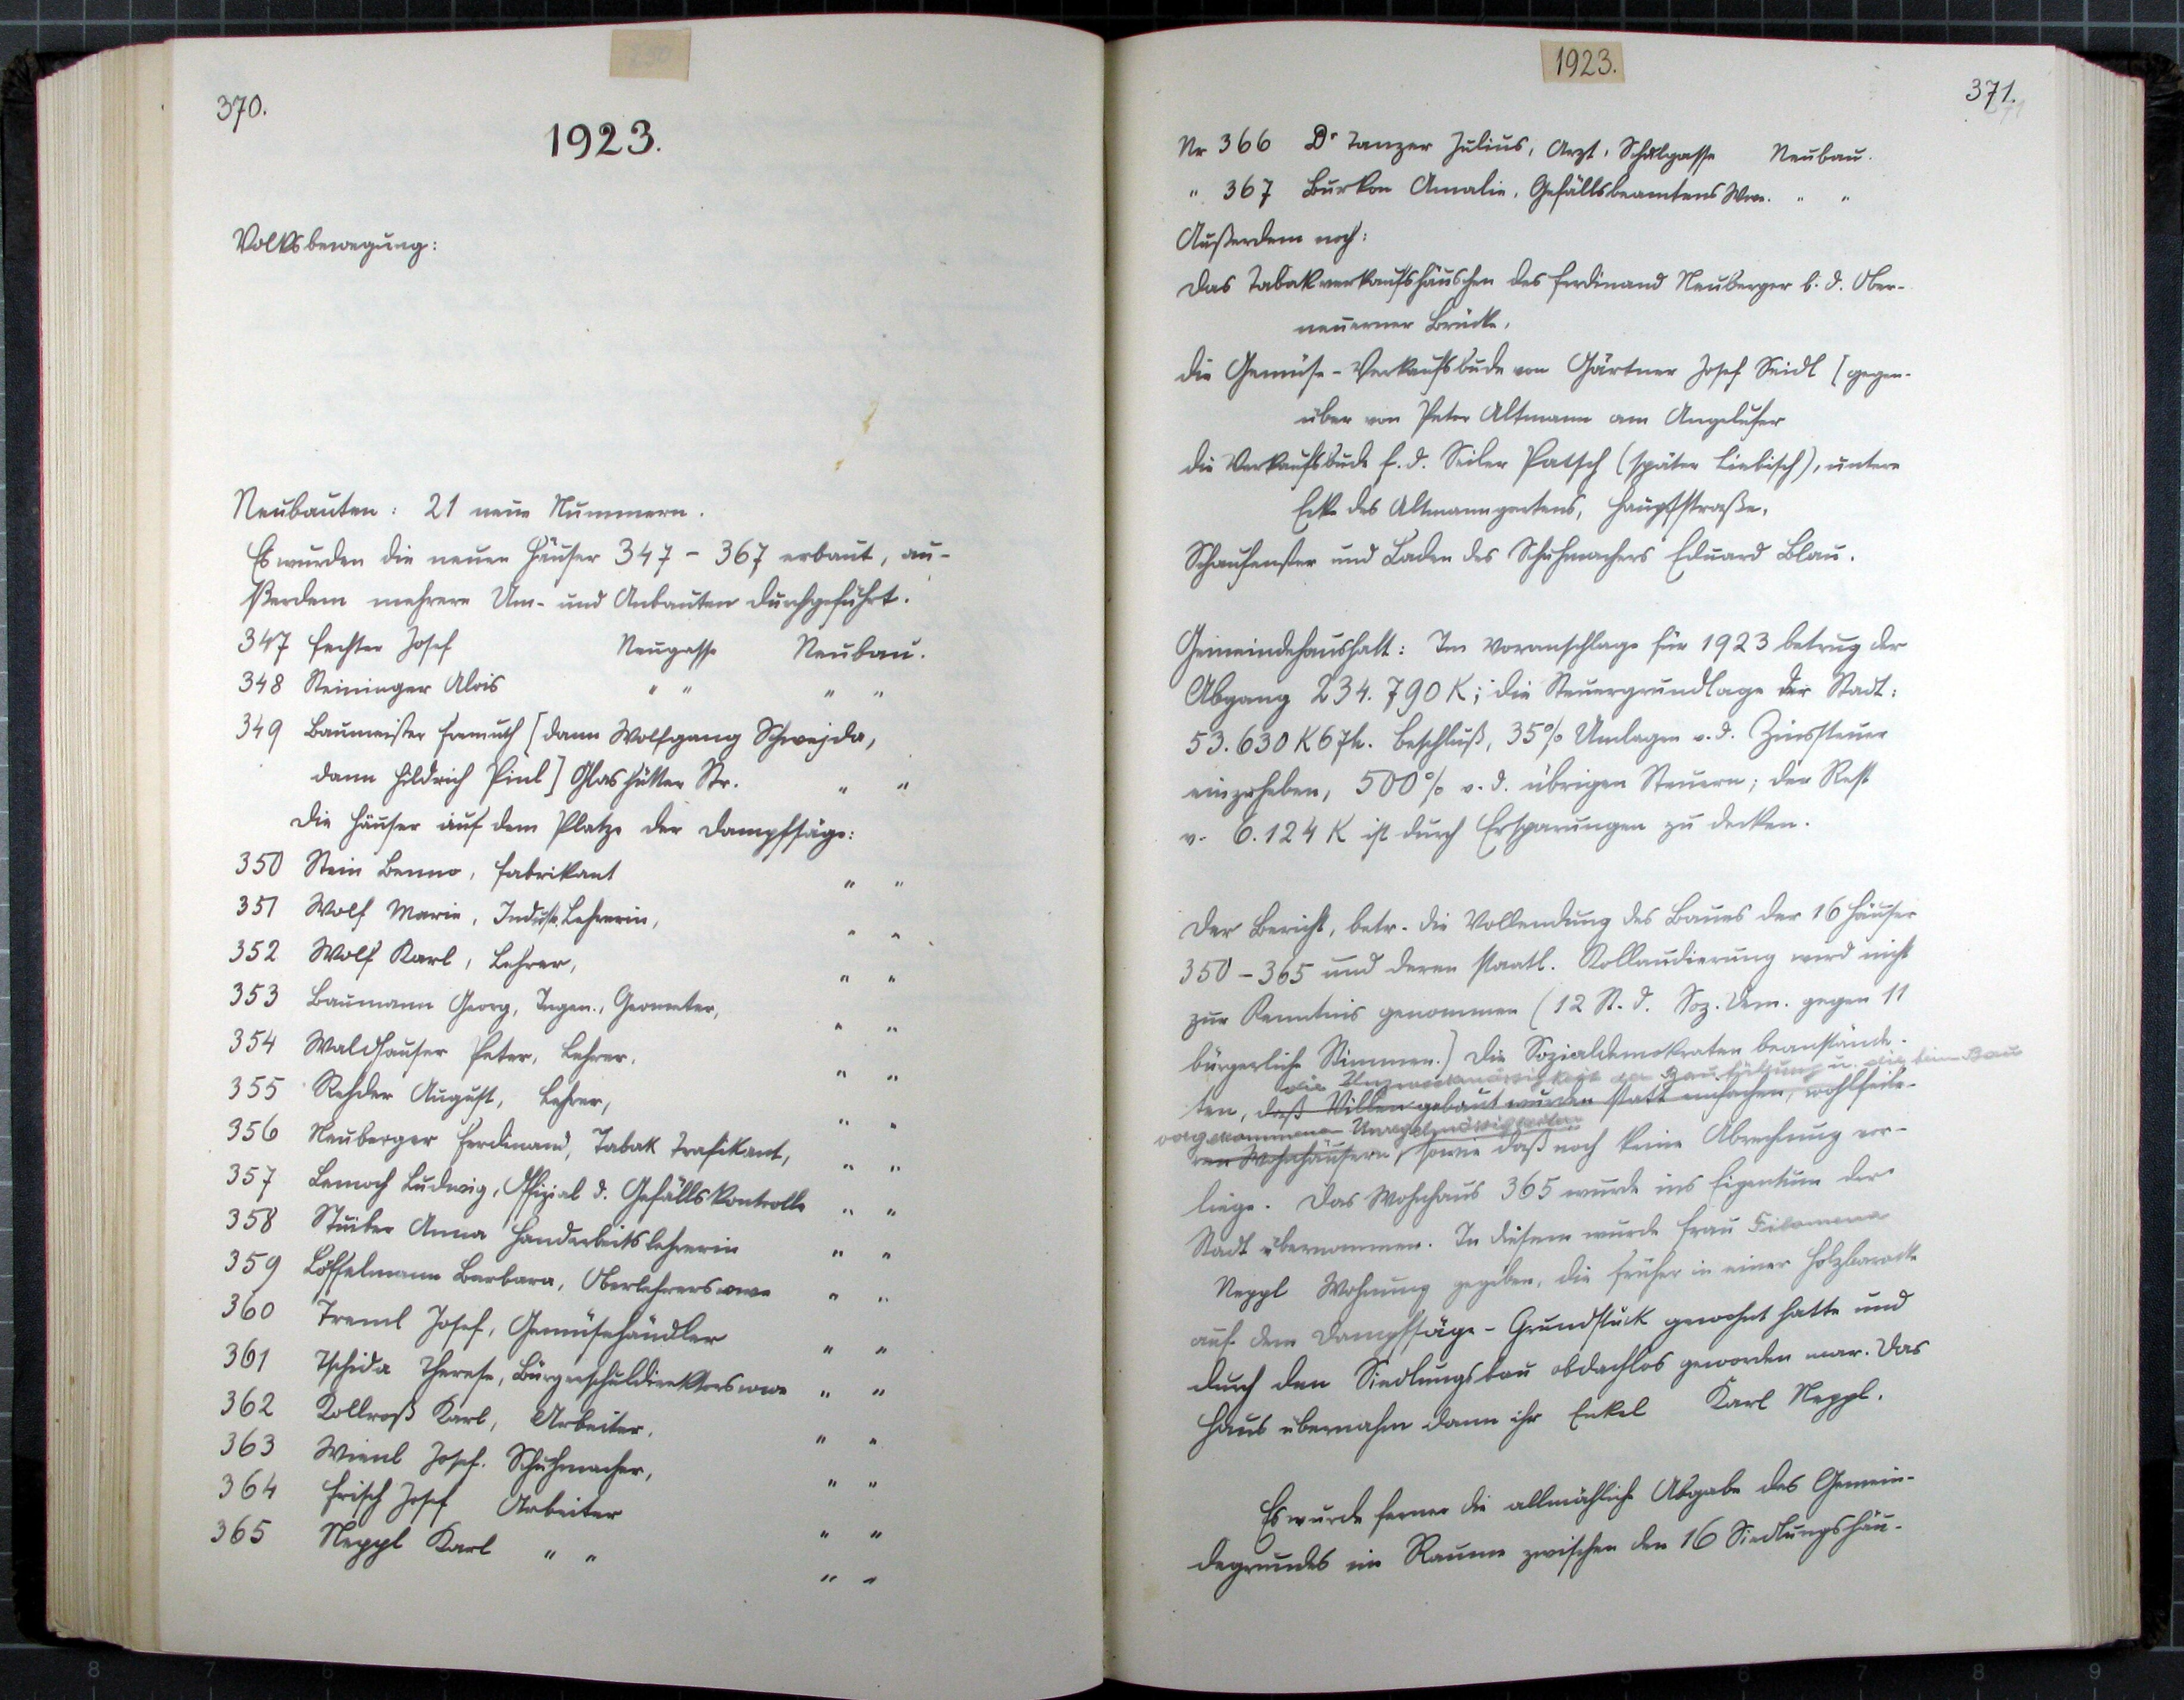 370.
1923.
Volksbewegung:
Neubauten: 21 neue Nummern.
Es wurden die neuen Häuser 347 – 367 erbaut, au-
ßerdem mehrere Um- und Anbauten durchgeführt.
347 Fechter Josef Neugasse Neubau.
348 Steininger Alois " " " "
349 Baumeister Fremuth [dann Wolfgang Schwejda,
dann Hildrich Pinl] Glashütten Str. " "
Die Häuser auf dem Platze der Dampfsäge:
350 Stein Benno, Fabrikant " "
351 Wolf Marie, Industr. Lehrerin, " "
352 Wolf Karl, Lehrer, " "
353 Baumann Georg, Ingen., Geometer, " "
354 Waldhauser Peter, Lehrer, " "
355 Rehder August, Lehrer, " "
356 Neuberger Ferdinand, Tabak Trafikant, " "
357 Lemoch Ludwig, Offizial d. Gefällskontrolle " "
358 Stuiber Anna Handarbeitslehrerin " "
359 Löffelmann Barbara, Oberlehrerswwe " "
360 Treml Josef, Gemüsehändler " "
361 Tschida Therese, Bürgerschuldirektorswwe " "
362 Kollroß Karl, Arbeiter, " "
363 Wienl Josef. Schuhmacher, " "
364 Frisch Josef Arbeiter " "
365 Neppl Karl " " " "
1923.
371.
Nr 366 Dr Tanzer Julius, Arzt, Schulgasse Neubau.
" 367 Burkon Amalie, Gefällsbeamtens Wwe. " "
Außerdem noch:
Das Tabakverkaufshäuschen des Ferdinand Neuberger b. d. Ober-
neuerner Brücke,
die Gemüse-Verkaufsbude von Gärtner Josef Seidl [gegen-
über von Peter Altmann am Angelufer
die Verkaufsbude f. d. Seiler Patsch (später Liebisch), untere
Ecke des Altmanngartens, Hauptstraße.
Schaufenster und Laden des Schuhmachers Eduard Blau.
Gemeindehaushalt: Im Voranschlage für 1923 betrug der
Abgang 234.790 K; die Steuergrundlage der Stadt:
53.630 K 67 h. Beschluß, 35% Umlagen v. d. Zinssteuer
einzuheben, 500% v. d. übrigen Steuern; der Rest
v. 6.124 K ist durch Ersparungen zu decken.
Der Bericht, betr. die Vollendung des Baues der 16 Häuser
350 – 365 und deren staatl. Kollaudierung wird nicht
zur Kenntnis genommen (12 St. d. Soz. Dem. gegen 11
bürgerliche Stimmen.) Die Sozialdemokraten beanstände-
die Unzweckmäßigkeit der Bauführung u. die beim Bau
ten, daß Villen gebaut wurden statt einfachen, wohlfeile-
vorgekommene Unregelmäßigkeiten
ren Wohnhäusern, sowie daß noch keine Abrechnung vor-
liege. Das Wohnhaus 365 wurde ins Eigentum der
Stadt übernommen. In diesem wurde Frau Filomena
Neppl Wohnung gegeben, die früher in einer Holzbaracke
auf dem Dampfsäge-Grundstück gewohnt hatte und
durch den Siedlungsbau obdachlos geworden war. Das
Haus übernahm dann ihr Enkel Karl Neppl.
Es wurde ferner die allmähliche Abgabe des Gemein-
degrundes im Raume zwischen den 16 Siedlungshäu-